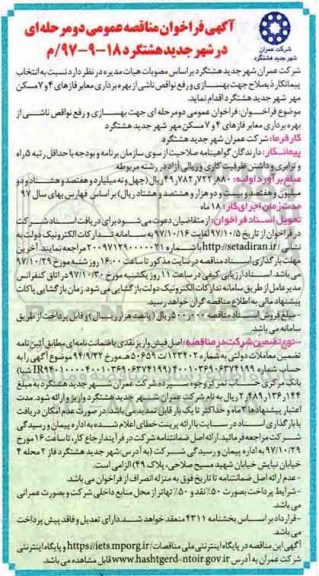 آگهی فراخوان مناقصه عمومی دو مرحله ای
در شهر جدید هشتگرد ۱۸-۹-۹۷/م
شرکت عمران
شهر جدید هشتگرد
شرکت عمران شهر جدید هشتگرد بر اساس مصوبات هیات مدیره در نظر دارد نسبت به انتخاب
پیمانکار ذیصلاح جهت بهسازی و رفع نواقص ناشی از بهره برداری معابر فازهای ۴ و ۷ مسکن
مهر شهر جدید هشتگرد اقدام نماید.
موضوع فراخوان: فراخوان عمومی دو مرحله ای جهت بهسازی و رفع نواقص ناشی از
بهره برداری معابر فازهای ۴ و ۷ مسکن مهر شهر جدید هشتگرد
کارفرما: شرکت عمران شهر جدید هشتگرد
پیمانکار: دارندگان گواهینامه صلاحیت از سوی سازمان برنامه و بودجه با حداقل رتبه ۵ راه
و ترابری و داشتن ظرفیت کاری و ریالی آزاد در رشته مربوطه
مبلغ برآورد اولیه: ۴۹,۷۸۲,۷۲۲,۸۸۰ ریال (چهل و نه میلیارد و هفتصد و هشتاد و دو
میلیون و هفتصد و بیست و دو هزار و هشتصد و هشتاد ریال) بر اساس فهارس بهای سال ۹۷
مدت زمان اجرای کار: ۱۸ ماه
تحویل اسناد فراخوان: از متقاضیان دعوت می شود برای دریافت اسناد شرکت
در فراخوان از تاریخ ۹۷/۱۰/۵ لغایت ۹۷/۱۰/۱۶ به سامانه تدارکات الکترونیک دولت به
نشانی http://setadiran.ir با شماره مراجعه نمایند. آخرین
مهلت بارگذاری اسناد مناقصه در سایت مذکور تا ساعت ۱۶:۰۰ روز شنبه مورخ ۹۷/۱۰/۲۹
می باشد. اسناد ارزیابی کیفی در ساعت ۱۱ روز یکشنبه مورخ ۹۷/۱۰/۳۰ در اتاق کنفرانس
مدیرعامل از طریق سامانه تدارکات الکترونیک دولت بازگشایی می شود. زمان بازگشایی پاکات
پیشنهاد مالی به اطلاع مناقصه گران خواهد رسید.
-مبلغ فروش اسناد مناقصه ۵۰۰,۰۰۰ ریال (پانصد هزار ریال) و قابل پرداخت از طریق
سامانه می باشد.
-نوع تضمین شرکت در مناقصه: اصل فیش واریز نقدی یا ضمانت نامه ای مطابق آئین نامه
تضمین معاملات دولتی به شماره ۱۲۳۴۰۲/ت۵۰۶۵۹ه مورخ ۹۴/۹/۲۲ موضوع آگهی را به
حساب شماره
بانک مرکزی حساب تمرکز وجوه سپرده شرکت عمران شهر جدید هشتگرد به مبلغ
۲,۴۸۹,۱۳۶,۱۴۴ ریال به نفع شرکت عمران شهر جدید هشتگرد واریز و ارائه شود. مدت
اعتبار پیشنهادها ۳ ماه و حداکثر تا یک بار قابل تمدید می باشد. در صورت عدم امکان دریافت
یا بارگذاری اسناد در سایت با ارائه پرینت خطای اعلام شده به اداره پیمان و رسیدگی
شرکت مراجعه فرمائید. ارائه اصل ضمانتنامه شرکت در فرآیند ارجاع کار، تا ساعت ۱۶ مورخ
۹۷/۱۰/۲۹ به اداره پیمان و رسیدگی شرکت (به آدرس: شهر جدید هشتگرد فاز ۲ محله ۴
خیابان نیایش خیابان شهید مسیح صلاحی، پلاک ۴۹) الزامی است.
-عدم ارائه اصل ضمانتنامه تا تاریخ فوق به منزله انصراف از فراخوان می باشد.
-شرایط پرداخت بصورت ۵۰٪ نقد و ۵۰٪ تهاتر از محل منابع داخلی شرکت و بصورت عمرانی
می باشد.
-قرارداد بر اساس بخشنامه ۴۳۱۱ منعقد خواهد شد. دارای تعدیل و فاقد پیش پرداخت
می باشد.
آگهی این مناقصه در پایگاه اینترنتی ملی مناقصات https://iets.mporg.ir و پایگاه اینترنتی
شرکت عمران به آدرس www.hashtgerd-ntoir.gov.ir قابل مشاهده می باشد.